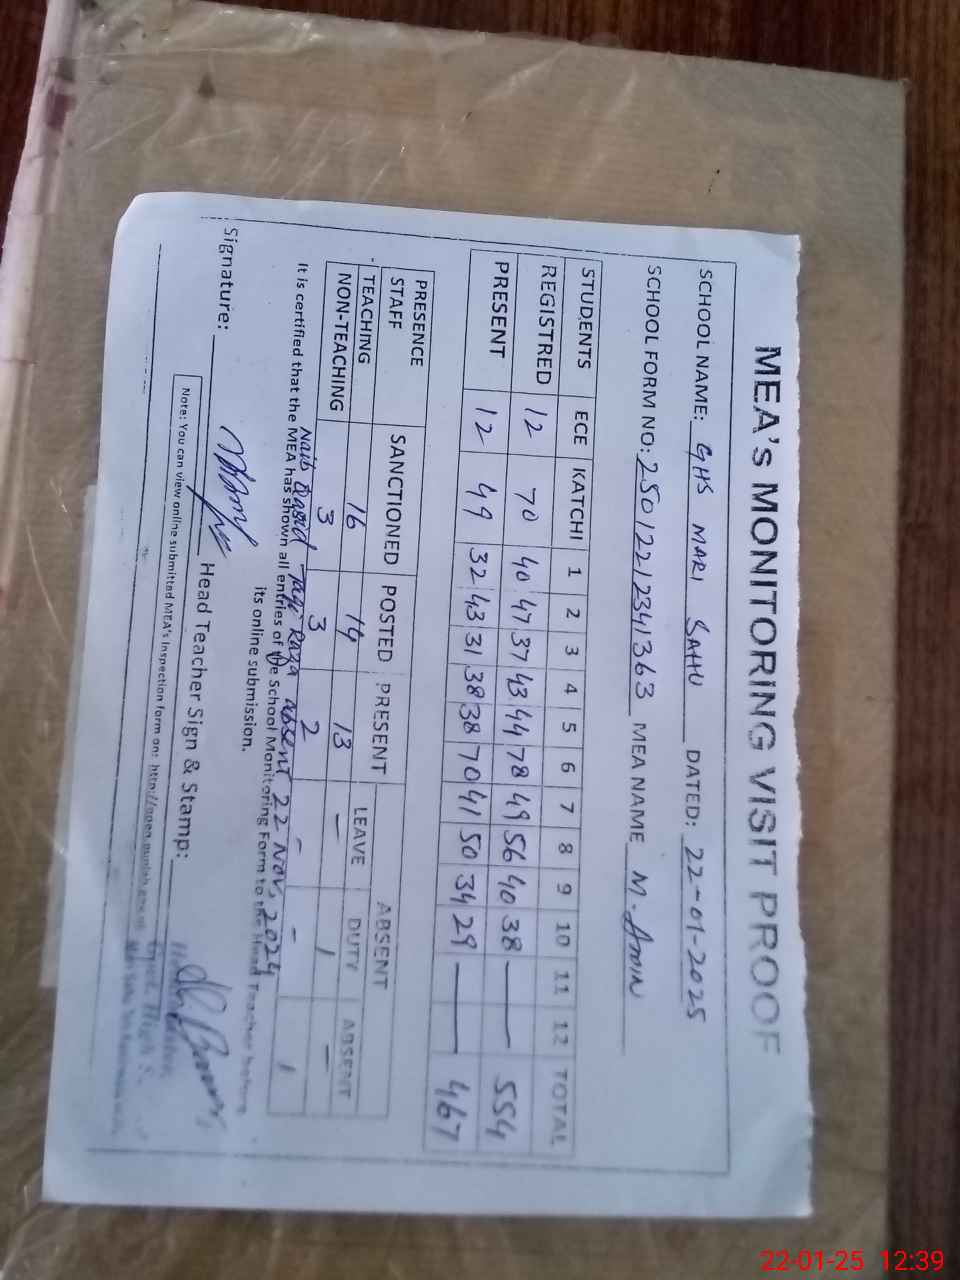 MEA's MONITORING VISIT PROOF
SCHOOL NAME: GHS MARI SAHU DATED: 22-01-2025
SCHOOL FORM NO: 25012212341363 MEA NAME M. Amin
STUDENTS ECE KATCHI 1 2 3 4 5 6 7 8 9 10 11 12 TOTAL
REGISTRED 12 70 40 47 37 43 44 78 49 56 40 38 — — 554
PRESENT 12 49 32 43 31 38 38 70 41 50 34 29 — — 467
PRESENCE STAFF SANCTIONED POSTED PRESENT ABSENT
LEAVE DUTY ABSENT
TEACHING 16 14 13 – 1 –
NON-TEACHING 3 3 2 - - 1
Naib Qasid Taqi Raza absent 22 Nov, 2024
It is certified that the MEA has shown all entries of the School Monitoring Form to the Head Teacher before
its online submission.
Signature: Head Teacher Sign & Stamp:
Note: You can view online submitted MEA's Inspection form on: http://open.punjab.gov.pk
22-01-25 12:39